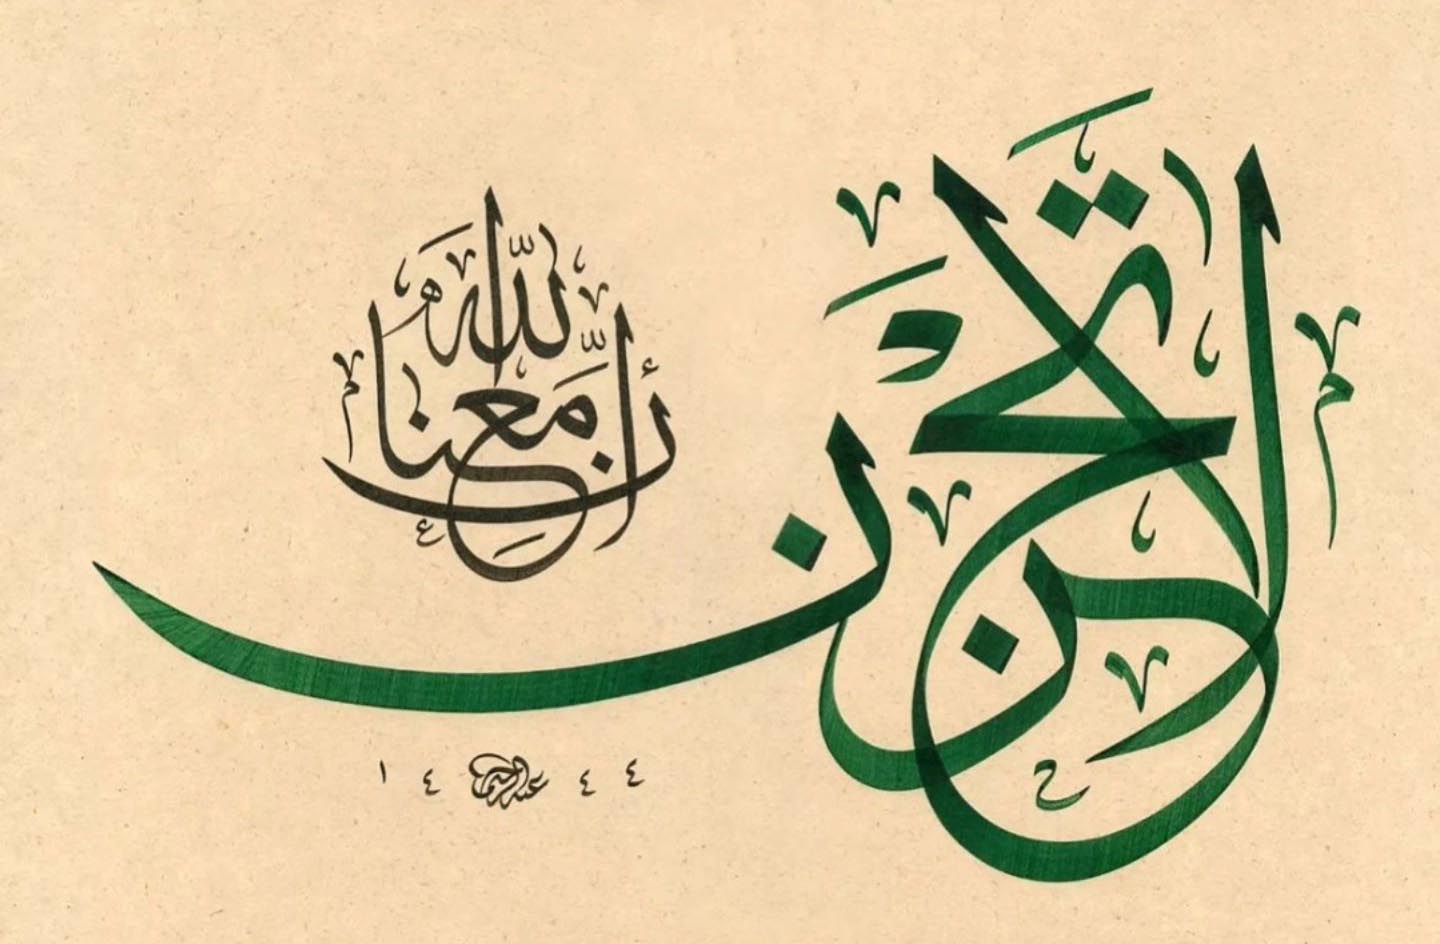 لَا تَحْزَنْ
إِنَّ اللّٰهَ مَعَنَا
١٤٤٤